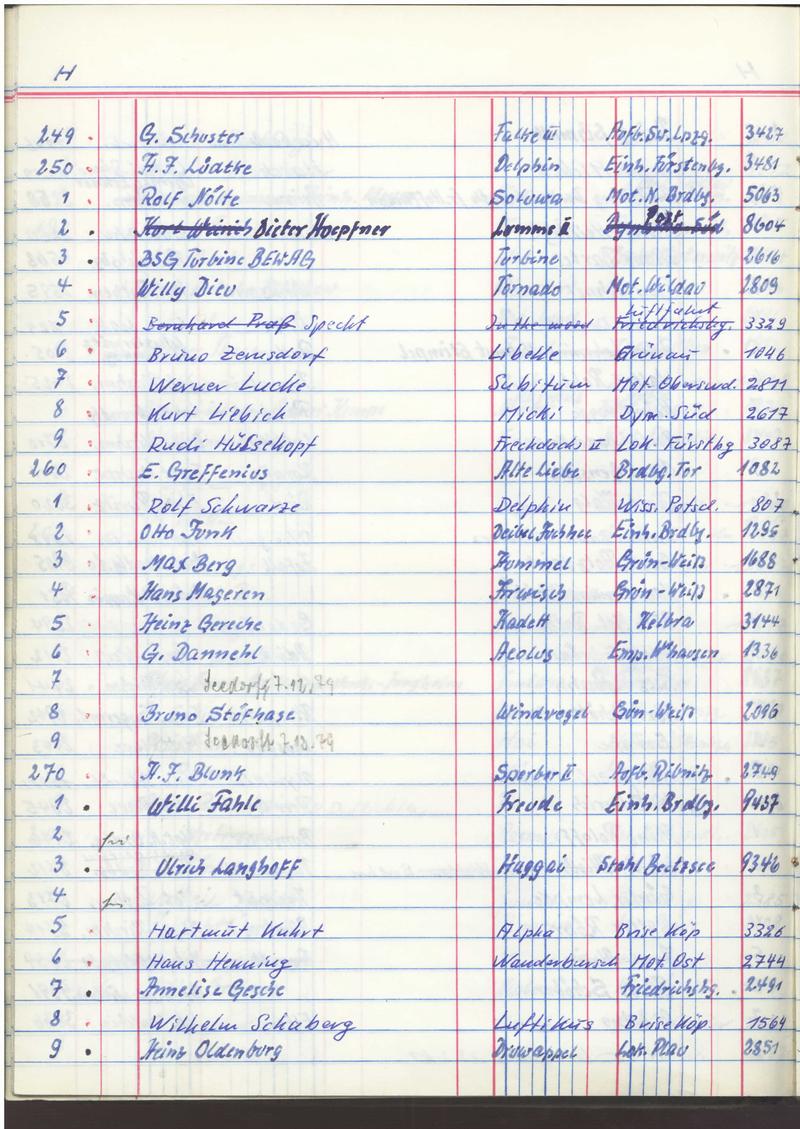 H
249 G. Schuster Falke III Aufb. Sw. Lpzg. 3427
250 H. F. Lüdtke Delphin Einh. Fürstenbg. 3481
1 Rolf Nölte Soluwa Mot. N. Brdbg. 5063
2 Kurt Weinich Dieter Hoepfner Lumme II Post 8604
3 BSG Turbine BEWAG Turbine 2616
4 Willy Dieu Tornado Mot. Wildau 2809
Luftfahrt
5 Bernhard Praß Specht In the mood Friedrichshg. 3329
6 Bruno Zernsdorf Libelle Grünau 1046
7 Werner Lucke Subitum Mot. Obersud. 2811
8 Kurt Liebich Micki Dym. Süd 2617
9 Rudi Hülsekopf Frechdachs II Lok. Fürsthg 3087
260 E. Greffenius Alte Liebe Brdbg. Tor 1082
1 Rolf Schwarze Delphin Wiss. Potsd. 807
2 Otto Funk Einh. Brdbg. 1296
3 Max Berg Hummel Grün-Weiß 1688
4 Hans Mageren Irrwisch Grün-Weiß 2871
5 Heinz Gereche Kadett Helbra 3144
6 G. Dannehl Aeolus Emp. W'hausen 1336
7 Seedorff 7.12.79
8 Bruno Stöfhase Windvogel Gün-Weiß 2096
9 Seedorff 7.12.79
270 H. F. Blunk Sperber II Aufb. Ribnitz 2749
1 Willi Fahle Freude Einh. Brdbg. 9437
2 frei
3 Ulrich Langhoff Huggai Stahl Beetzsee 9346
4
5 Hartmut Kuhrt Alpha Brise Köp 3326
6 Hans Henning Wanderbursch Mot. Ost 2744
7 Annelise Gesche Friedrichshg. 2491
8 Wilhelm Schaberg Luftikus Brise Köp. 1564
9 Heinz Oldenburg Druwappel Lok. Plau 2851